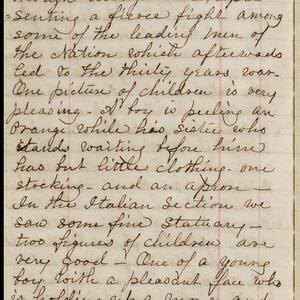 senting a fierce fight among
some of the leading men of
the Nation which afterwards
led to the thirty years war.
One picture of children is very
pleasing. A boy is peeling an
orange while his sister who
stands waiting before him
has but little clothing. one
stocking - and an apron -
In the Italian section we
saw some fine statuary -
two figures of children are
very good - One of a young
boy with a pleasant face who
is holding up a